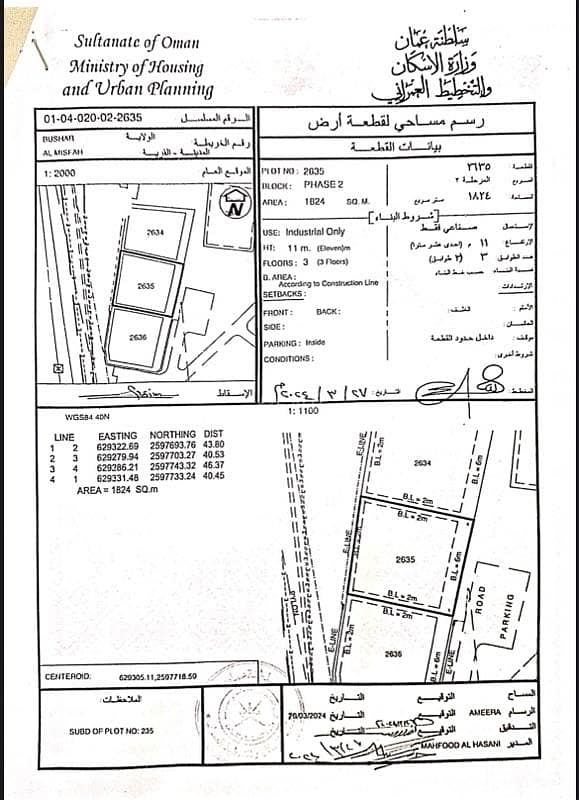 Sultanate of Oman
Ministry of Housing
and Urban Planning
سلطنة عمان
وزارة الإسكان
والتخطيط العمراني
01-04-020-02-2635
الرقم المسلسل :
BUSHAR
الولاية
AL MISFAH
المدينة - القرية
رقم الخريطة :
1: 2000
الموقع العام
N
2634
2635
2636
الإسقاط
رسم مساحي لقطعة أرض
بيانات القطعة
PLOT NO : 2635
القطعة: ٢٦٣٥
BLOCK: PHASE 2
المربع: المرحلة ٢
AREA : 1824 SQ. M.
١٨٢٤ متر مربع
[شروط البناء]
USE: Industrial Only
الاستعمال: صناعي فقط
HT: 11 m. (Eleven)m
الإرتفاع: ١١ م (احدى عشر مترا)
FLOORS : 3 (3 Floors)
عدد الطوابق: ٣ (٣ طوابق)
B. AREA :
According to Construction Line
نسبة البناء: حسب خط البناء
SETBACKS :
الإرتدادات
FRONT : BACK :
الأمام: الخلف:
SIDE :
PARKING : Inside
موقف: داخل حدود القطعة
CONDITIONS :
شروط أخرى:
المخطط:
تاريخ: ٢٧ / ٣ / ٢٠٢٤م
WGS84 40N
1: 1100
LINE EASTING NORTHING DIST
1 2 629322.69 2597693.76 43.80
2 3 629279.94 2597703.27 40.53
3 4 629286.21 2597743.32 46.37
4 1 629331.48 2597733.24 40.45
AREA = 1824 SQ.m
E-LINE
B.L = 2m
2634
B.L = 6m
B.L = 2m
B.L = 2m
E-LINE
2635
B.L = 6m
B.L = 2m
B.L = 2m
E-LINE
B.L = 2m
2636
B.L = 6m
E-LINE
ROAD
PARKING
CENTEROID: 629305.11,2597718.59
الملاحظات:
SUBD OF PLOT NO: 235
المساح
التوقيع
التاريخ
الرسام AMEERA
التوقيع
التاريخ 20/03/2024
التدقيق
التوقيع
التاريخ
المدير MAHFOOD AL HASANI
التوقيع
التاريخ